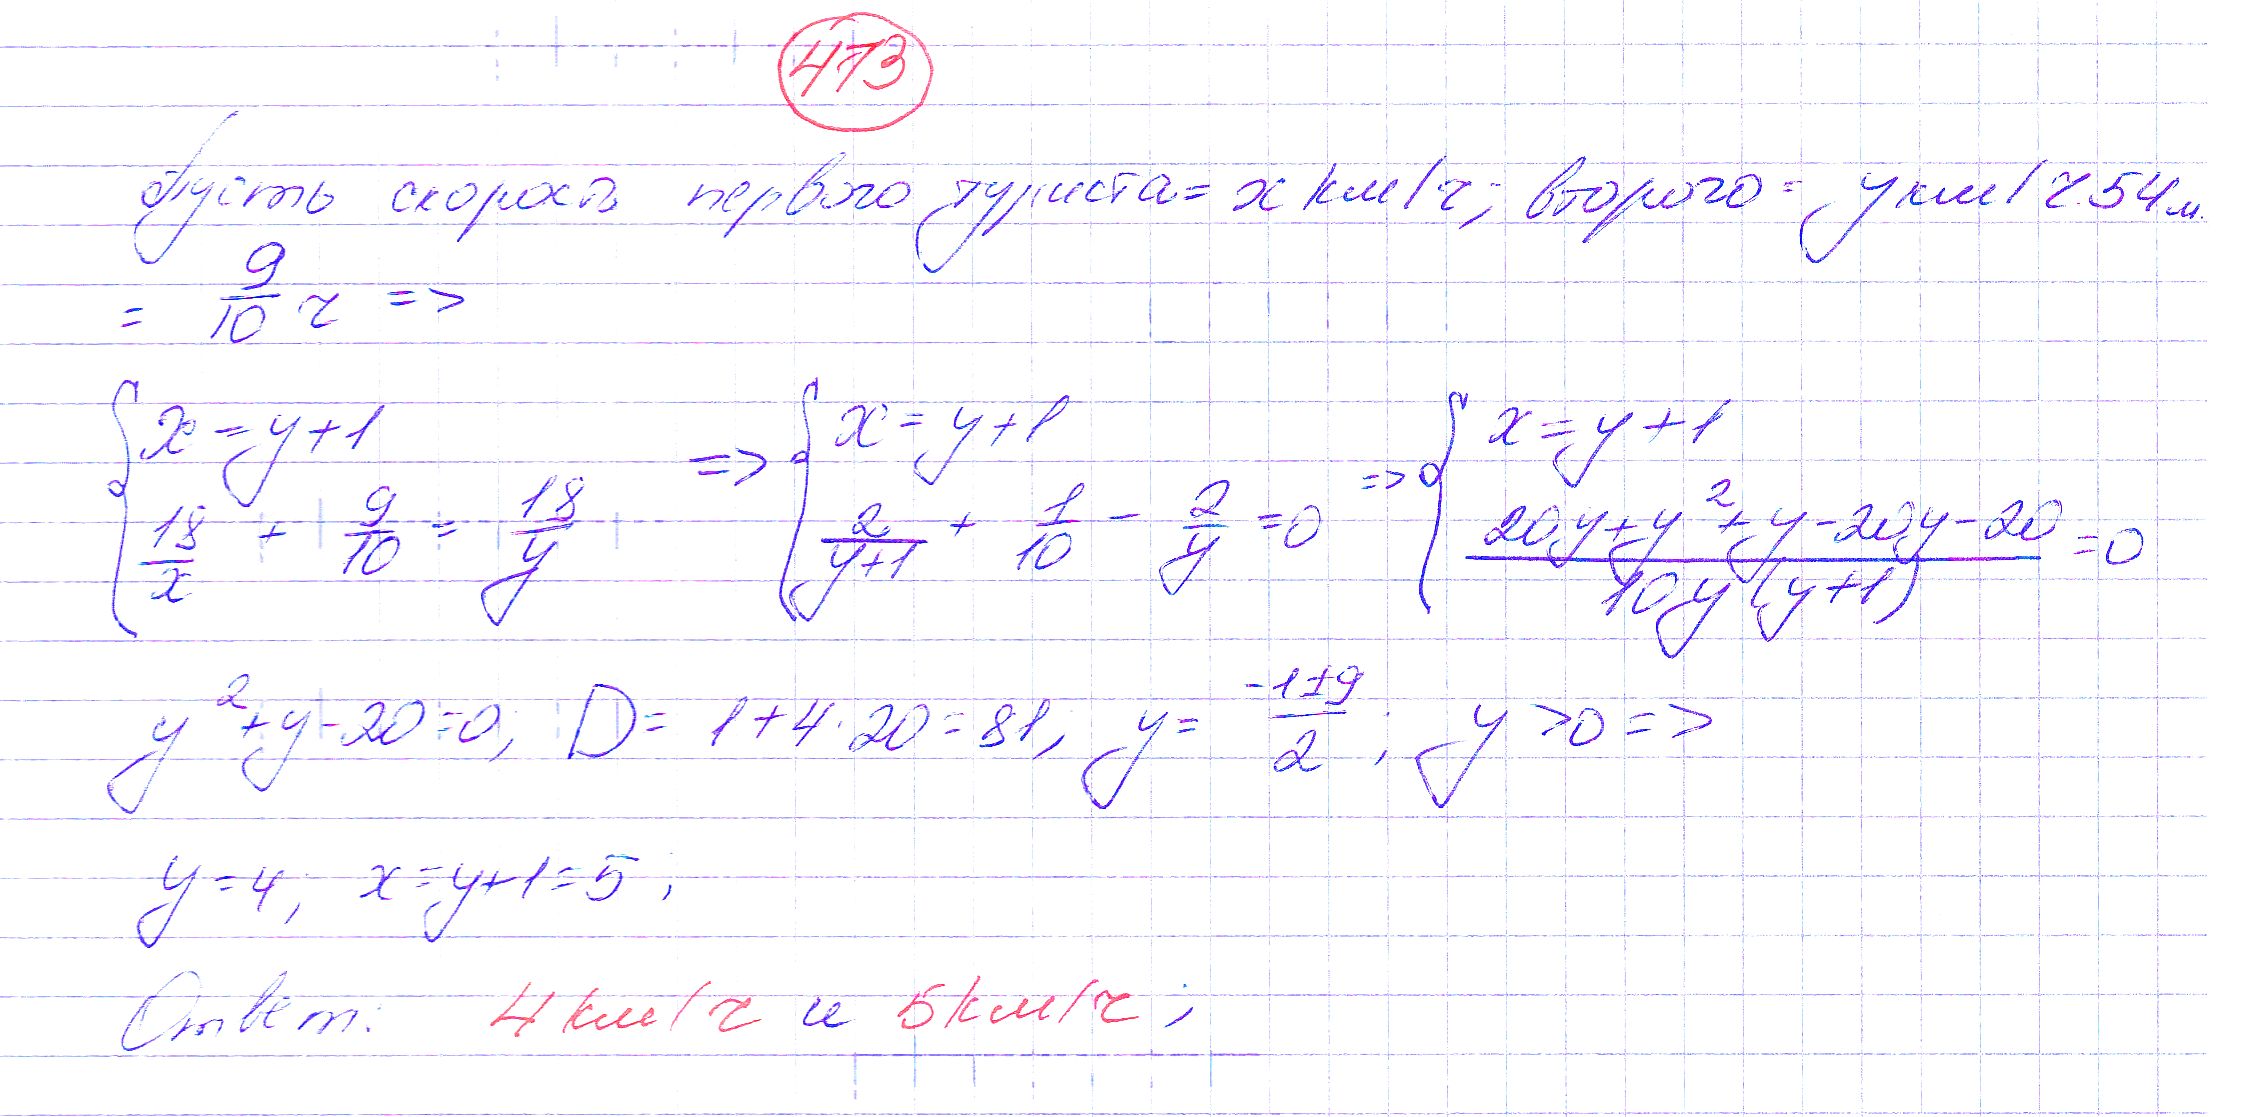 473
Пусть скорость первого туриста = x км/ч; второго = y км/ч. 54 м.
= 9/10 ч =>
{ x = y+1 => { x = y+1 => { x = y+1
18/x + 9/10 = 18/y 2/(y+1) + 1/10 - 2/y = 0 (20y+y²+y-20y-20)/(10y(y+1)) = 0
y²+y-20=0; D = 1+4·20=81; y = (-1±9)/2; y>0 =>
y=4; x=y+1=5;
Ответ: 4 км/ч и 5 км/ч;